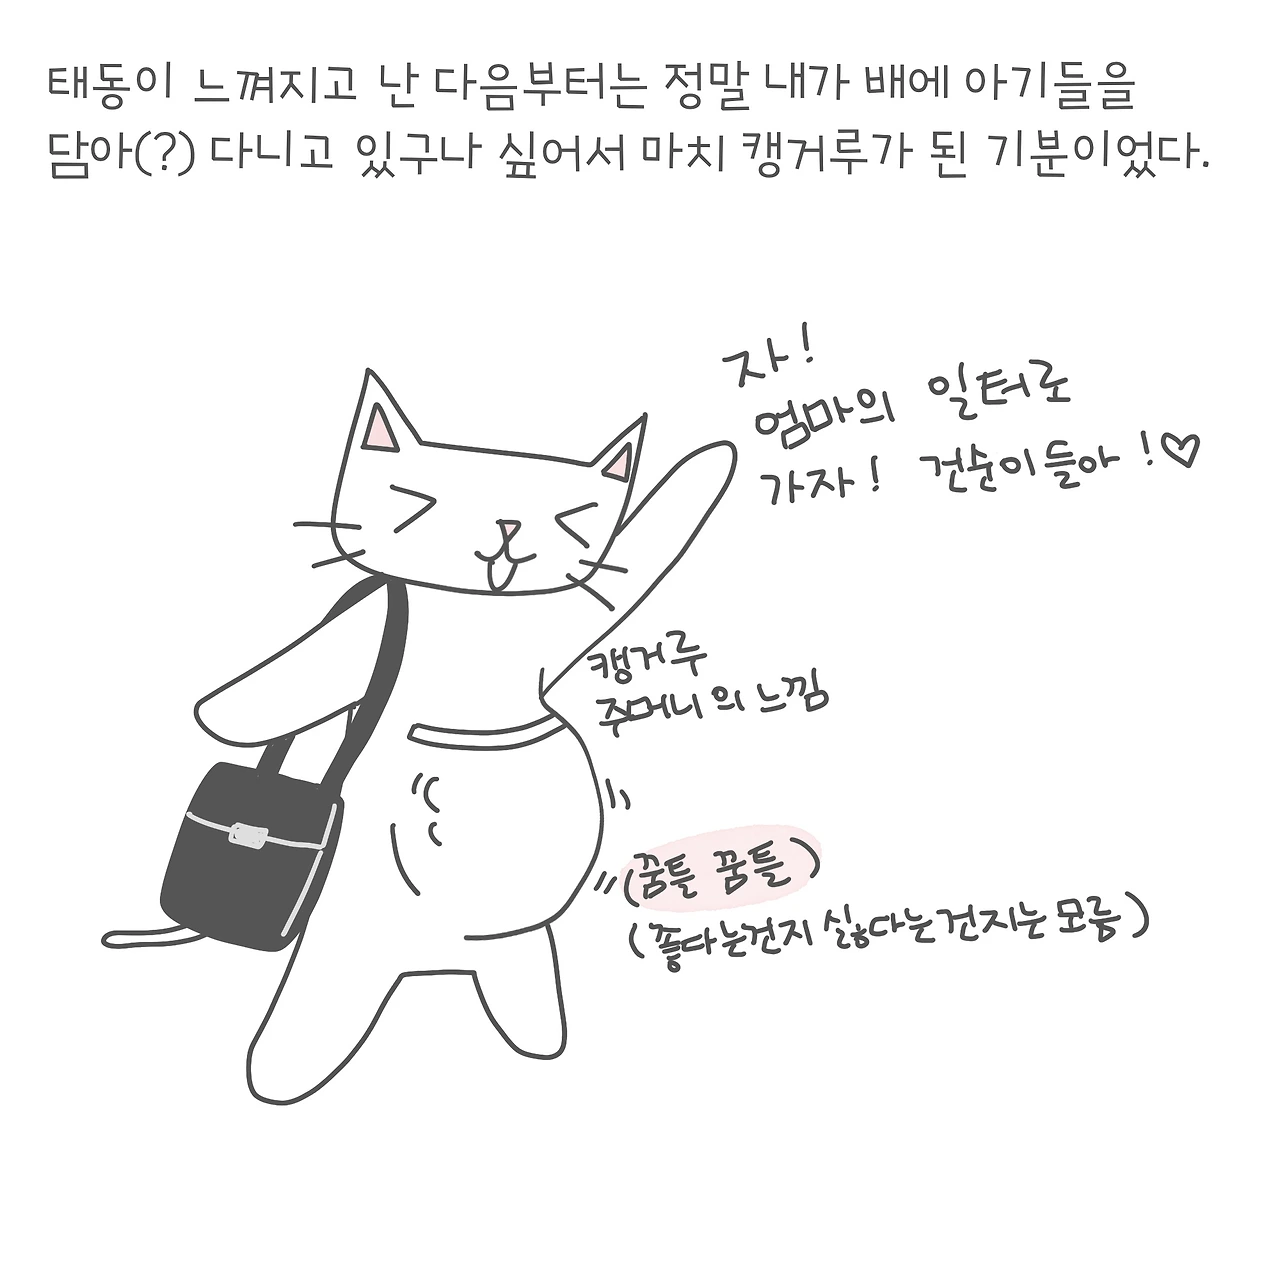 태동이 느껴지고 난 다음부터는 정말 내가 배에 아기들을
담아(?) 다니고 있구나 싶어서 마치 캥거루가 된 기분이었다.
자!
엄마의 일터로
가자! 건순이들아!♡
캥거루
주머니의 느낌
(꿈틀 꿈틀)
(좋다는건지 싫다는건지는 모름)